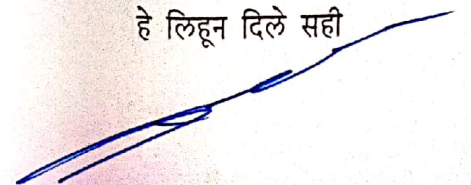 हे लिहून दिले सही